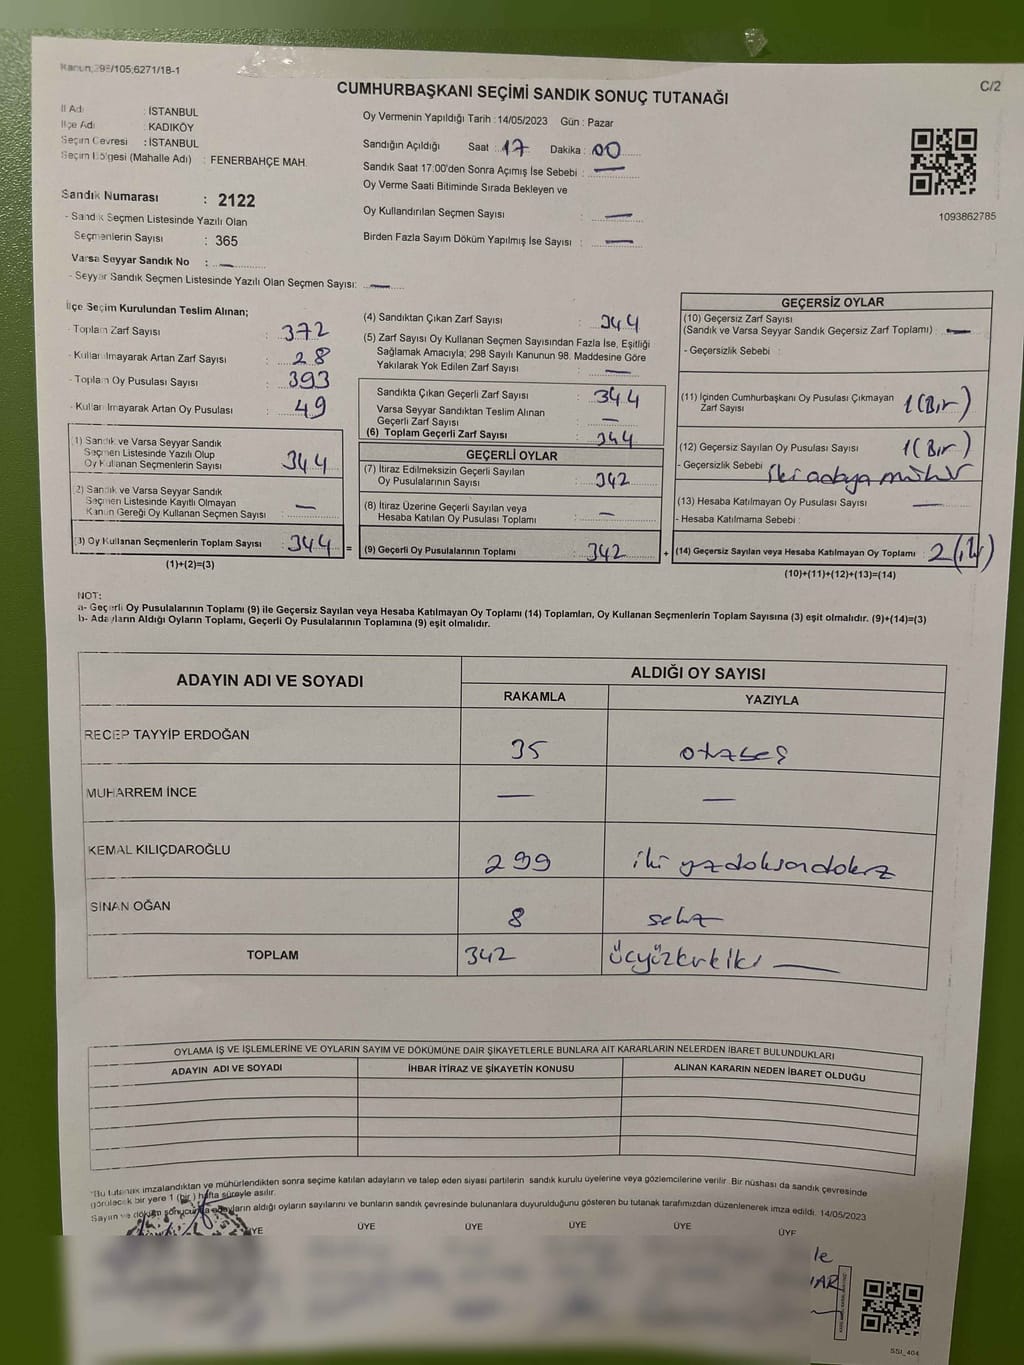 Kanun;298/105;6271/18-1
C/2
CUMHURBAŞKANI SEÇİMİ SANDIK SONUÇ TUTANAĞI
İl Adı : İSTANBUL
İlçe Adı : KADIKÖY
Seçim Çevresi : İSTANBUL
Seçim Bölgesi (Mahalle Adı) : FENERBAHÇE MAH.
Sandık Numarası : 2122
- Sandık Seçmen Listesinde Yazılı Olan
Seçmenlerin Sayısı : 365
Varsa Seyyar Sandık No : —
- Seyyar Sandık Seçmen Listesinde Yazılı Olan Seçmen Sayısı: —
Oy Vermenin Yapıldığı Tarih : 14/05/2023 Gün : Pazar
Sandığın Açıldığı Saat : 17 Dakika : 00
Sandık Saat 17:00'den Sonra Açımış İse Sebebi : —
Oy Verme Saati Bitiminde Sırada Bekleyen ve
Oy Kullandırılan Seçmen Sayısı : —
Birden Fazla Sayım Döküm Yapılmış İse Sayısı : —
1093862785
İlçe Seçim Kurulundan Teslim Alınan;
- Toplam Zarf Sayısı : 372
- Kullanılmayarak Artan Zarf Sayısı : 28
- Toplam Oy Pusulası Sayısı : 393
- Kullanılmayarak Artan Oy Pusulası : 49
(1) Sandık ve Varsa Seyyar Sandık
Seçmen Listesinde Yazılı Olup
Oy Kullanan Seçmenlerin Sayısı : 344
(2) Sandık ve Varsa Seyyar Sandık
Seçmen Listesinde Kayıtlı Olmayan
Kanun Gereği Oy Kullanan Seçmen Sayısı : —
(3) Oy Kullanan Seçmenlerin Toplam Sayısı : 344 =
(1)+(2)=(3)
(4) Sandıktan Çıkan Zarf Sayısı : 344
(5) Zarf Sayısı Oy Kullanan Seçmen Sayısından Fazla İse, Eşitliği
Sağlamak Amacıyla; 298 Sayılı Kanunun 98. Maddesine Göre
Yakılarak Yok Edilen Zarf Sayısı : —
Sandıkta Çıkan Geçerli Zarf Sayısı : 344
Varsa Seyyar Sandıktan Teslim Alınan
Geçerli Zarf Sayısı : —
(6) Toplam Geçerli Zarf Sayısı : 344
GEÇERLİ OYLAR
(7) İtiraz Edilmeksizin Geçerli Sayılan
Oy Pusulalarının Sayısı : 342
(8) İtiraz Üzerine Geçerli Sayılan veya
Hesaba Katılan Oy Pusulası Toplamı : —
(9) Geçerli Oy Pusulalarının Toplamı : 342 +
GEÇERSİZ OYLAR
(10) Geçersiz Zarf Sayısı
(Sandık ve Varsa Seyyar Sandık Geçersiz Zarf Toplamı) : —
- Geçersizlik Sebebi :
(11) İçinden Cumhurbaşkanı Oy Pusulası Çıkmayan
Zarf Sayısı : 1 (Bir)
(12) Geçersiz Sayılan Oy Pusulası Sayısı : 1 (Bir)
- Geçersizlik Sebebi : iki adaya mühür
(13) Hesaba Katılmayan Oy Pusulası Sayısı : —
- Hesaba Katılmama Sebebi :
(14) Geçersiz Sayılan veya Hesaba Katılmayan Oy Toplamı : 2 (iki)
(10)+(11)+(12)+(13)=(14)
NOT:
a- Geçerli Oy Pusulalarının Toplamı (9) ile Geçersiz Sayılan veya Hesaba Katılmayan Oy Toplamı (14) Toplamları, Oy Kullanan Seçmenlerin Toplam Sayısına (3) eşit olmalıdır. (9)+(14)=(3)
b- Adayların Aldığı Oyların Toplamı, Geçerli Oy Pusulalarının Toplamına (9) eşit olmalıdır.
ADAYIN ADI VE SOYADI
ALDIĞI OY SAYISI
RAKAMLA YAZIYLA
RECEP TAYYİP ERDOĞAN 35 otuzbeş
MUHARREM İNCE — —
KEMAL KILIÇDAROĞLU 299 iki yüzdoksandokuz
SİNAN OĞAN 8 sekiz
TOPLAM 342 üçyüzkırkiki —
OYLAMA İŞ VE İŞLEMLERİNE VE OYLARIN SAYIM VE DÖKÜMÜNE DAİR ŞİKAYETLERLE BUNLARA AİT KARARLARIN NELERDEN İBARET BULUNDUKLARI
ADAYIN ADI VE SOYADI İHBAR İTİRAZ VE ŞİKAYETİN KONUSU ALINAN KARARIN NEDEN İBARET OLDUĞU
*Bu tutanak imzalandıktan ve mühürlendikten sonra seçime katılan adayların ve talep eden siyasi partilerin sandık kurulu üyelerine veya gözlemcilerine verilir. Bir nüshası da sandık çevresinde
görülecek bir yere 1 (bir) hafta süreyle asılır.
Sayım ve döküm sonucunda adayların aldığı oyların sayılarını ve bunların sandık çevresinde bulunanlara duyurulduğunu gösteren bu tutanak tarafımızdan düzenlenerek imza edildi. 14/05/2023
ÜYE ÜYE ÜYE ÜYE ÜYE ÜYE